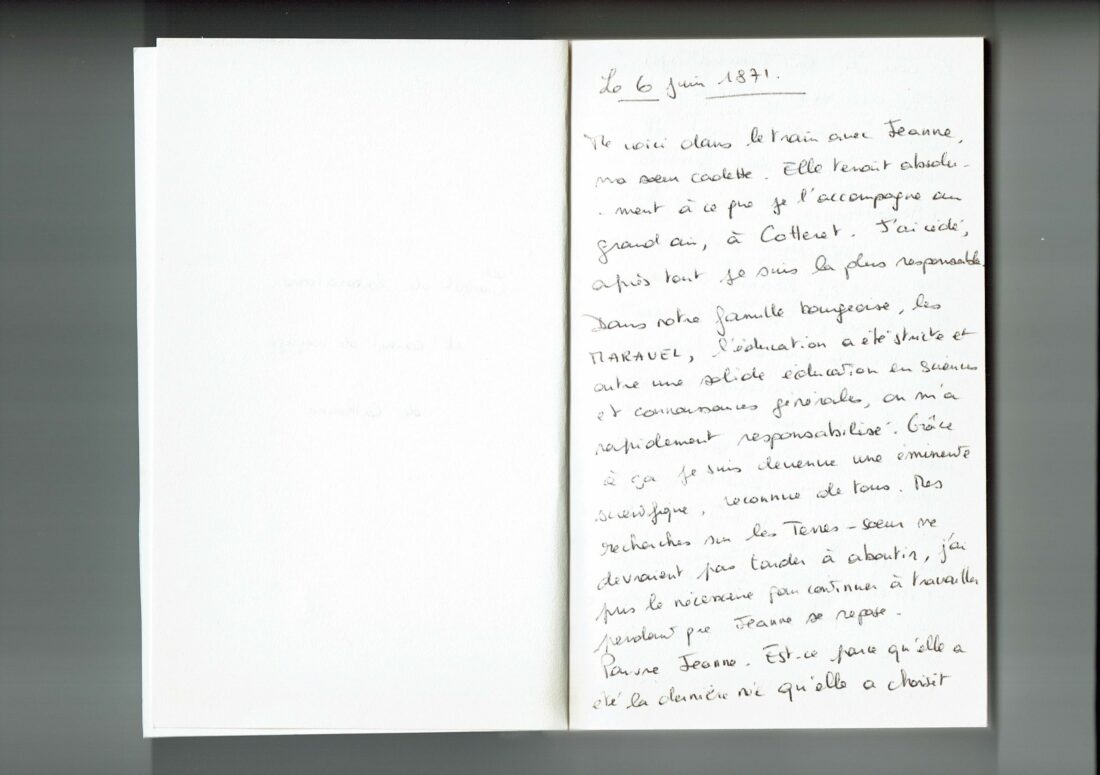 Le 6 juin 1871.
Me voici dans le train avec Jeanne,
ma sœur cadette. Elle tenait absolu-
-ment à ce que je l'accompagne au
grand air, à Cotteret. J'ai cédé,
après tout je suis la plus responsable.
Dans notre famille bourgeoise, les
MARAVEL, l'éducation a été stricte et
outre une solide éducation en sciences
et connaissances générales, on m'a
rapidement responsabilisé. Grâce
à ça je suis devenue une éminente
scientifique, reconnue de tous. Mes
recherches sur les Terres-sœur ne
devraient pas tarder à aboutir, j'ai
pris le nécessaire pour continuer à travailler
pendant que Jeanne se repose.
Pauvre Jeanne. Est-ce parce qu'elle a
été la dernière née qu'elle a choisit